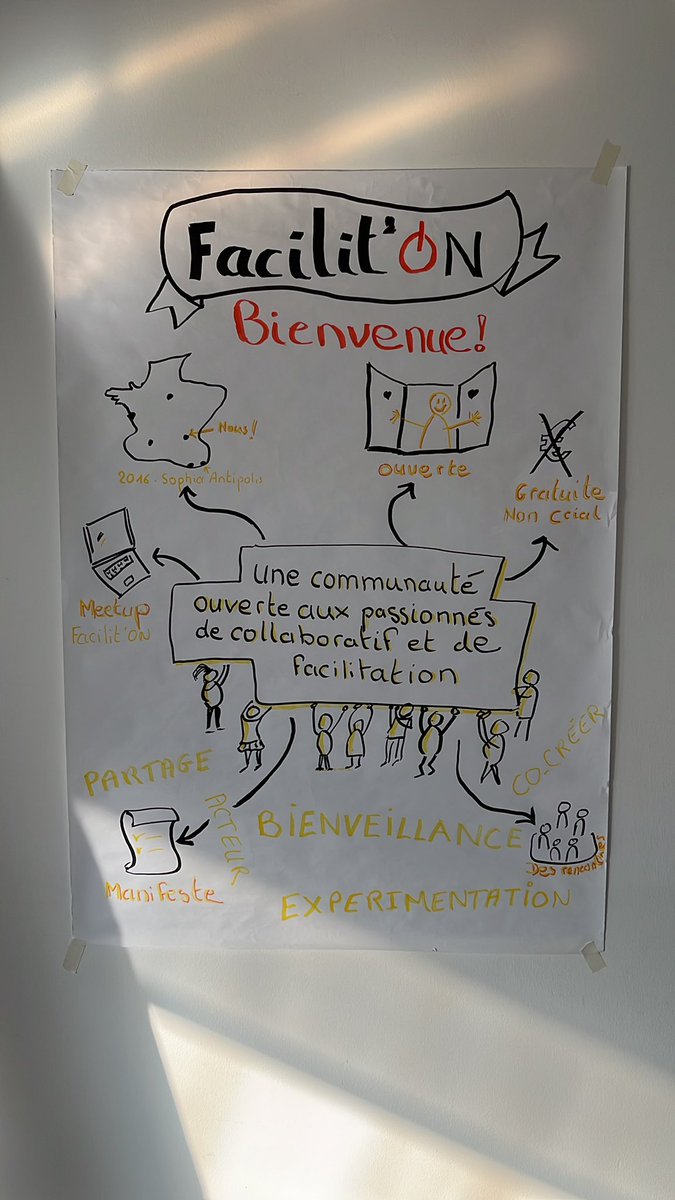 Facilit'ON
Bienvenue!
Nous!
2016 - Sophia Antipolis
Ouverte
Gratuite
Non Ccial
Meetup
Facilit'ON
Une communauté
ouverte aux passionnés
de collaboratif et de
facilitation
PARTAGE
ACTEUR
BIENVEILLANCE
CO-CRÉER
Manifeste
Des rencontres
EXPERIMENTATION